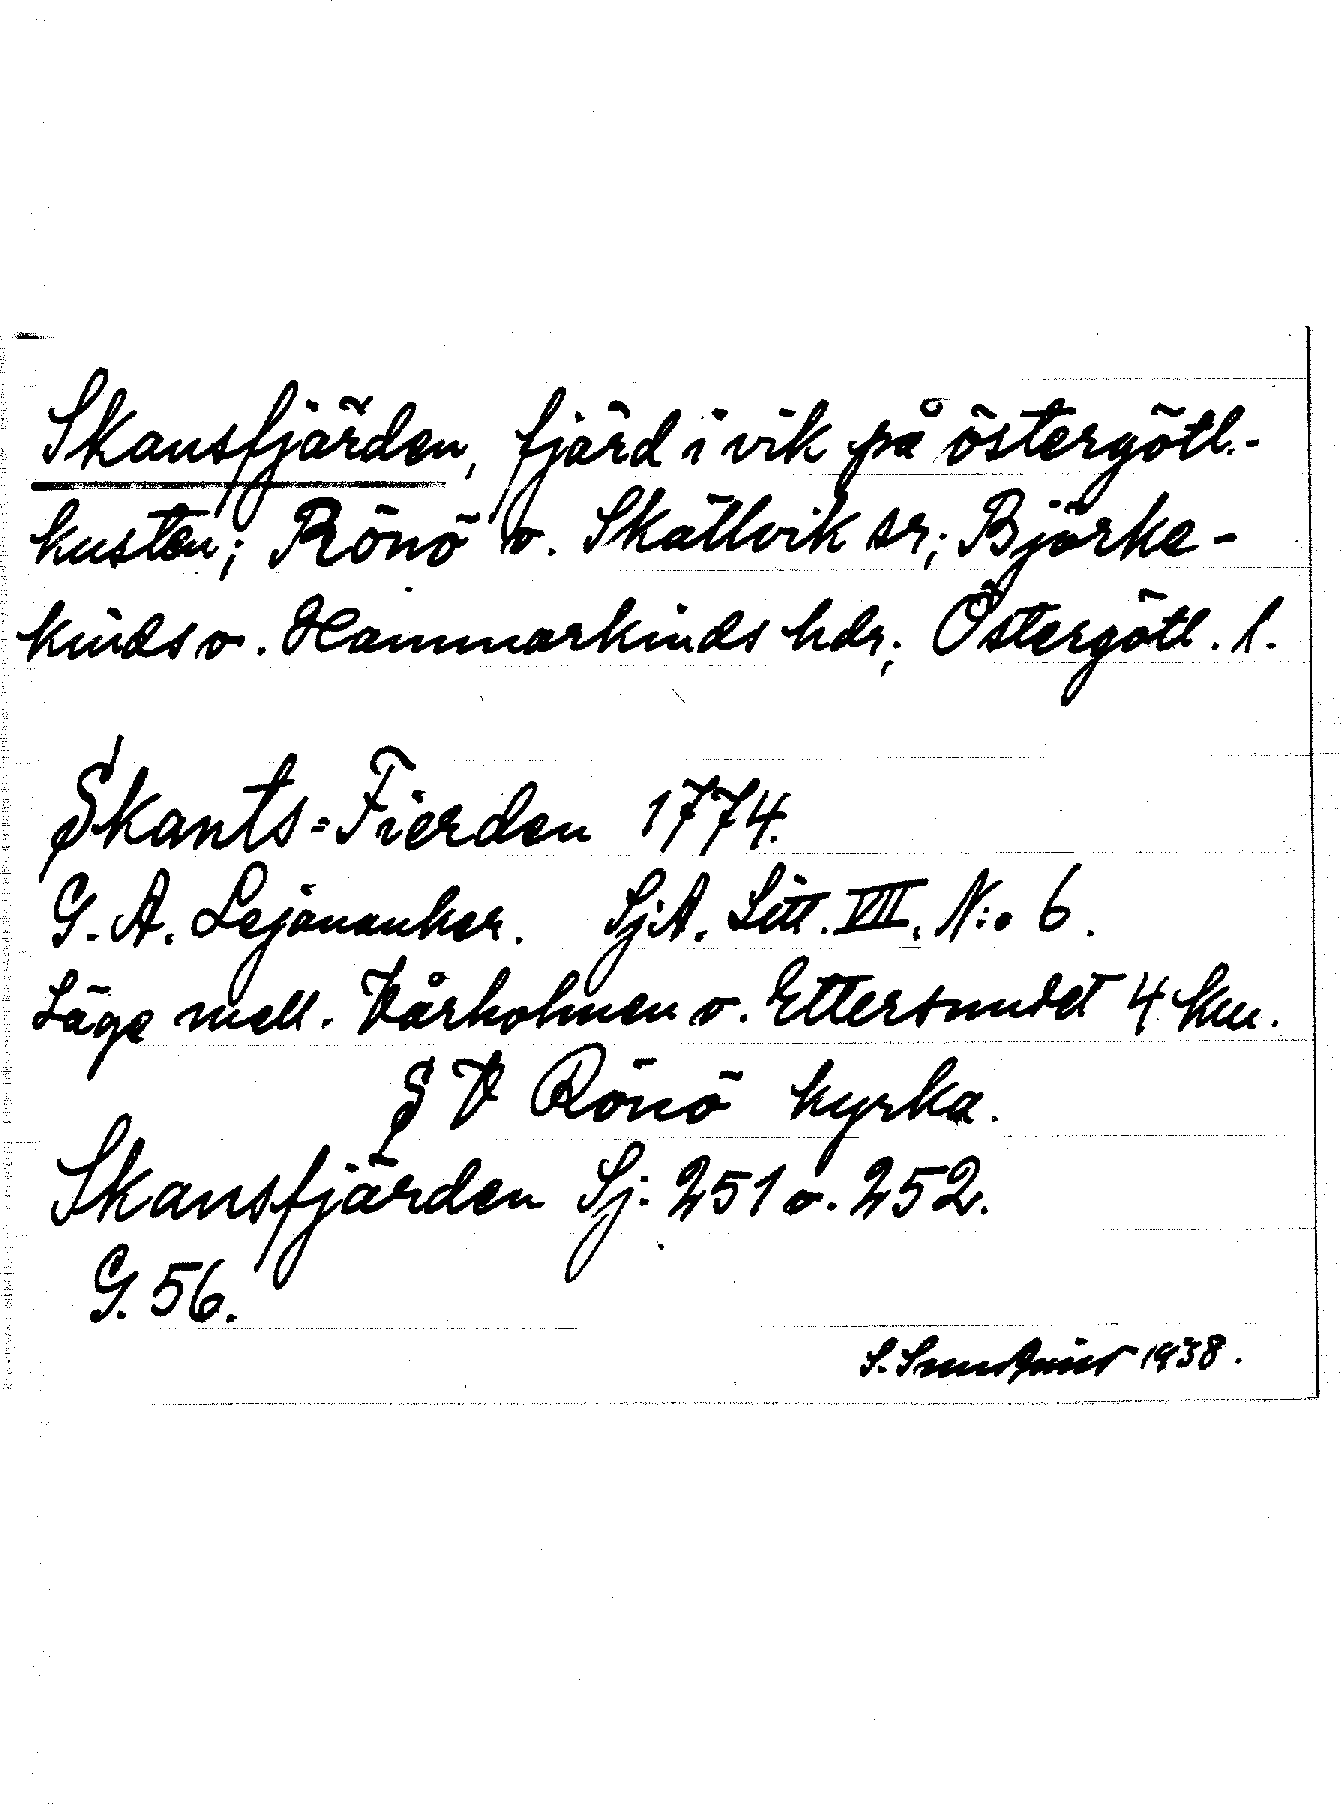 Skansfjärden, fjärd i vik på östergötl.-
kusten; Rönö o. Skällvik sr; Björke-
kinds o. Hammarkinds hdr; Östergötl. l.
Skants=Fierden 1774.
G. A. Lejonanker. Sj:A. Litt. VII. N:o 6.
Läge mell. Vårholmen o. Ettersundet 4 km.
S V Rönö kyrka.
Skansfjärden Sj: 251 o. 252.
G. 56.
S. 1938.